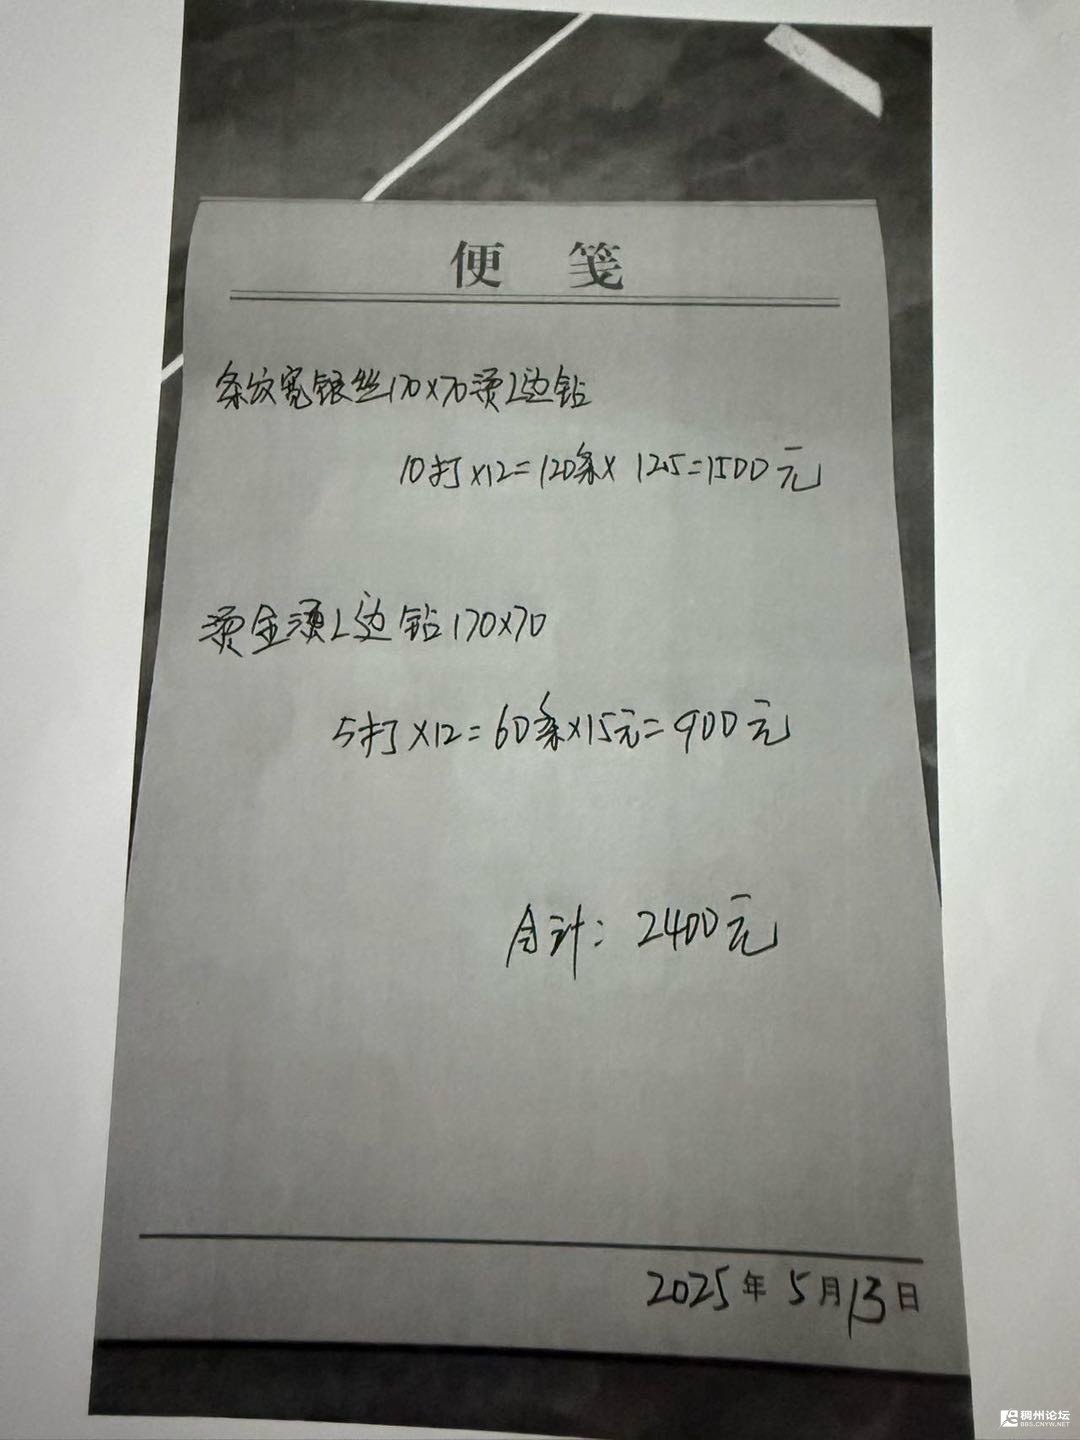 便 笺
条纹宽银丝170×70烫L边钻
10打×12=120条×12.5=1500元
烫金烫L边钻170×70
5打×12=60条×15元=900元
合计：2400元
2025年5月13日
稠州论坛
BBS.CNYW.NET